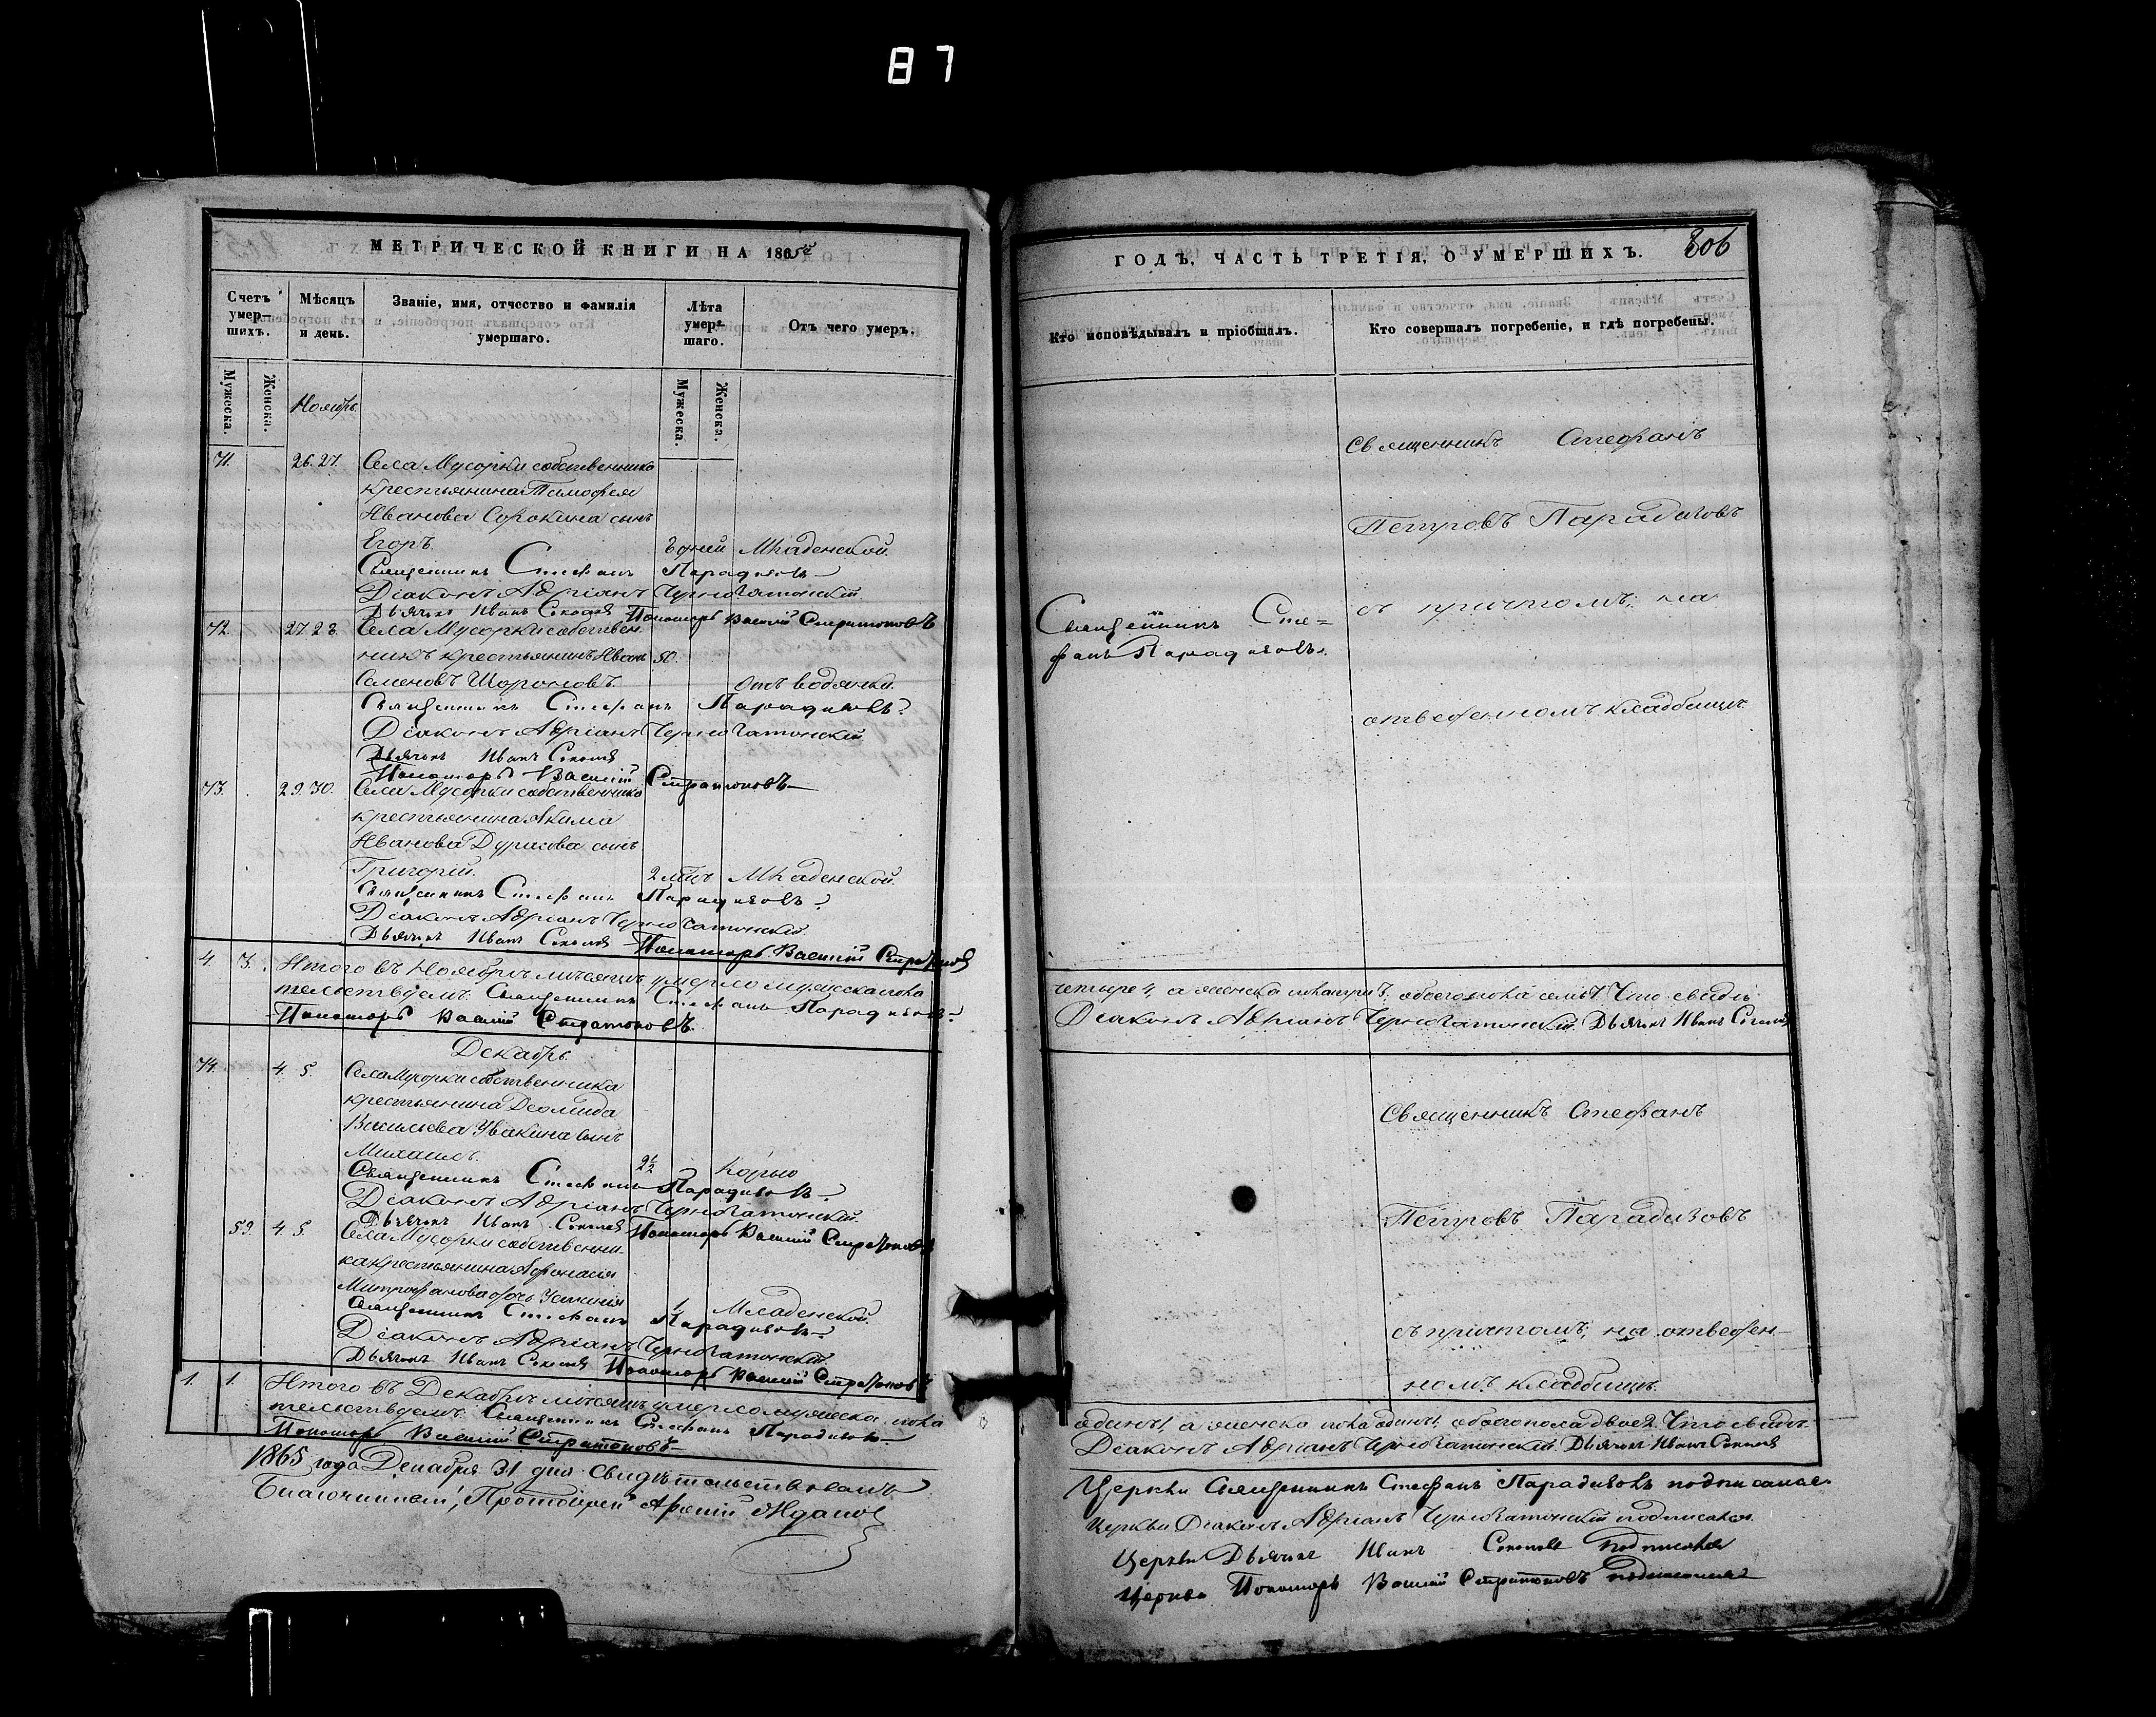 87
МЕТРИЧЕСКОЙ КНИГИ НА 1865й
Счетъ умер-шихъ.
Мѣсяцъ и день.
Званіе, имя, отчество и фамилія умершаго.
Лѣта умер-шаго.
Отъ чего умеръ.
Мужеска.
Женска.
Мужеска.
Женска.
Ноябрь.
71. 26. 27. Села Мусорки собственника
крестьянина Тимофея
Иванова Сорокина сынъ
Егоръ. 3 дней Младенской.
Священникъ Стефанъ Парадизовъ
Діаконъ Адріанъ Черногатонскій
Дьячокъ Иванъ Соколовъ Пономарь Василій Стратоновъ
72. 27. 28. Села Мусорки собствен-
никъ крестьянинъ Иванъ 50.
Семеновъ Шороновъ. Отъ водянки.
Священникъ Стефанъ Парадизовъ
Діаконъ Адріанъ Черногатонскій
Дьячокъ Иванъ Соколовъ
Пономарь Василій Стратоновъ
73. 29. 30. Села Мусорки собственника
крестьянина Акима
Иванова Дурасова сынъ
Григорій. 2 мѣц. Младенской.
Священникъ Стефанъ Парадизовъ
Діаконъ Адріанъ Черногатонскій
Дьячокъ Иванъ Соколовъ Пономарь Василій Стратоновъ
4 3. Итого въ Ноябрѣ мѣсяцѣ умерло мужеска пола
тельствуемъ: Священникъ Стефанъ Парадизовъ
Пономарь Василій Стратоновъ.
Декабрь.
74. 4. 5. Села Мусорки собственника
крестьянина Деомида
Васильева Увакина сынъ
Михаилъ. 2½ Корью
Священникъ Стефанъ Парадизовъ
Діаконъ Адріанъ Черногатонскій.
Дьячокъ Иванъ Соколовъ Пономарь Василій Стратоновъ
59. 4. 5. Села Мусорки собственни-
ка крестьянина Афонасія
Митрофанова дочь Устинія 1 Младенской.
Священникъ Стефанъ Парадизовъ
Діаконъ Адріанъ Черногатонскій.
Дьячокъ Иванъ Соколовъ Пономарь Василій Стратоновъ
1. 1. Итого въ Декабрѣ мѣсяцѣ умерло мужеска пола
тельствуемъ: Священникъ Стефанъ Парадизовъ
Пономарь Василій Стратоновъ
1865 года Декабря 31 дня свидѣтельствовалъ
Благочинный, Протоіерей Ждановъ
ГОДЪ, ЧАСТЬ ТРЕТІЯ, О УМЕРШИХЪ. 806
Кто исповѣдывалъ и пріобщалъ.
Кто совершалъ погребеніе, и гдѣ погребены.
Священникъ Стефанъ
Петровъ Парадизовъ
съ причтомъ; на
отведенномъ кладбищѣ.
Священникъ Сте=
фанъ Парадизовъ.
четыре 4, а женска пола три 3, обоего пола семь 7. Что свидѣ-
Діаконъ Адріанъ Черногатонскій. Дьячокъ Иванъ Соколовъ
Священникъ Стефанъ
Петровъ Парадизовъ
съ причтомъ; на отведен-
номъ кладбищѣ.
одинъ 1, а женска пола одинъ 1, обоего пола двое 2. Что свидѣ-
Діаконъ Адріанъ Черногатонскій. Дьячокъ Иванъ Соколовъ
Церкви Священникъ Стефанъ Парадизовъ подписался.
Церкви Діаконъ Адріанъ Черногатонскій подписался.
Церкви Дьячокъ Иванъ Соколовъ подписался
Церкви Пономарь Василій Стратоновъ подписался